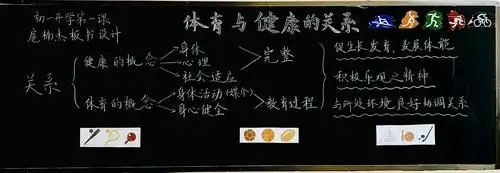 初一开学第一课
体育与健康的关系
板书设计
关系
健康的概念
身体
心理
社会适应
完整
体育的概念
身体活动(媒介)
身心健全
教育过程
促生长发育,发展体能
积极乐观之精神
与所处环境良好协调关系